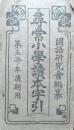 國語研究會編纂
尋常小學讀本字引
第五學年後期用